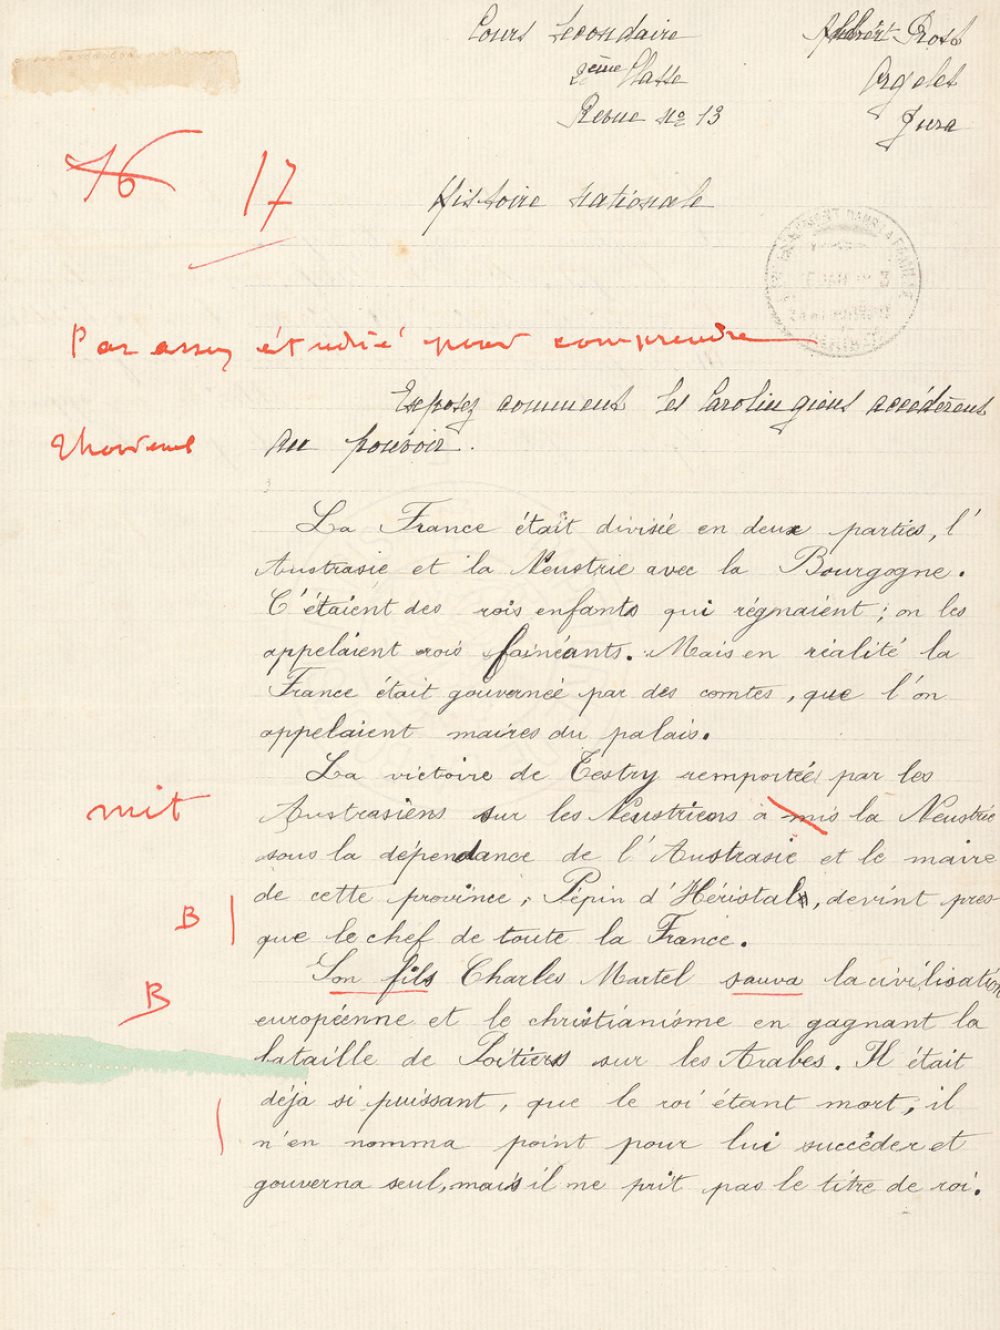 Cours Secondaire
Albert Rost
2ème Classe
Orgelet
Revue No 13
Jura
16 17
Histoire nationale
Pas assez étudié pour comprendre
Exposez comment les Carolingiens accédèrent
au pouvoir.
La France était divisée en deux parties, l'
Austrasie et la Neustrie avec la Bourgogne.
C'étaient des rois enfants qui régnaient ; on les
appelaient rois fainéants. Mais en réalité la
France était gouvernée par des comtes, que l'on
appelaient maires du palais.
La victoire de Testry remportée par les
mit
Austrasiens sur les Neustriens à mis la Neustrie
sous la dépendance de l'Austrasie et le maire
de cette province, Pépin d'Héristal, devint pres-
B
que le chef de toute la France.
Son fils Charles Martel sauva la civilisation
B
européenne et le christianisme en gagnant la
bataille de Poitiers sur les Arabes. Il était
déja si puissant, que le roi étant mort, il
n'en nomma point pour lui succéder et
gouverna seul, mais il ne prit pas le titre de roi.